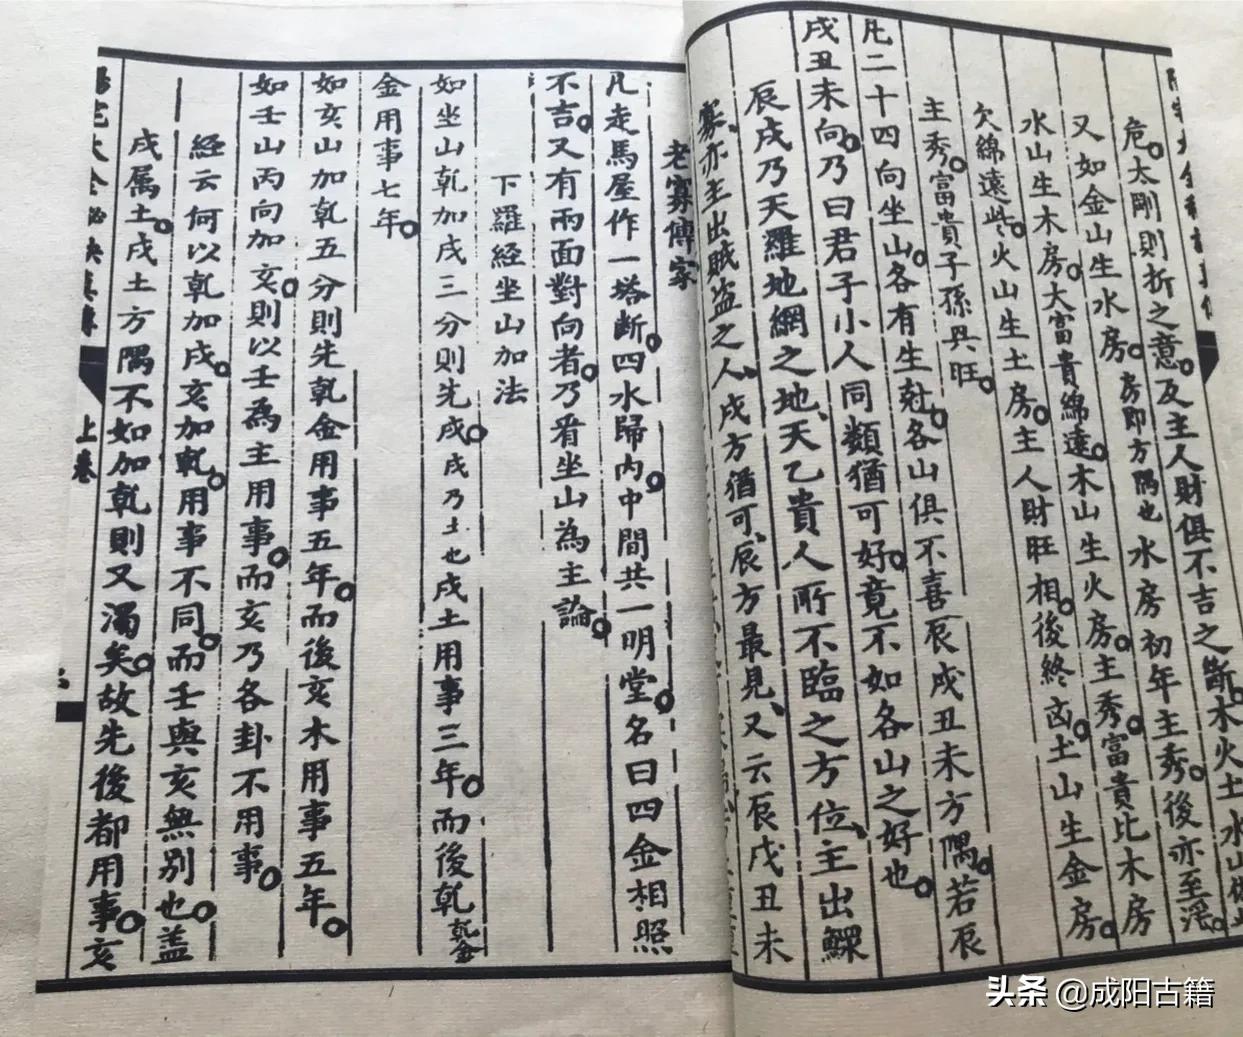 危太剛則折之意及主人財俱不吉之斷木火土水山做此
又如金山生水房房即方隅也水房初年主秀後亦至淫
水山生木房大富貴綿遠木山生火房主秀富貴比木房
欠綿遠些火山生土房主人財旺相後終凶土山生金房
主秀富貴子孫興旺
凡二十四向坐山各有生尅各山俱不喜辰戌丑未方隅若辰
戌丑未向乃曰君子小人同類猶可好竟不如各山之好也
辰戌乃天羅地網之地天乙貴人所不臨之方位主出鰥
寡亦主出賊盜之人戌方猶可辰方最見又云辰戌丑未
老寡傳家
凡走馬屋作一塔斷四水歸內中間共一明堂名曰四金相照
不吉又有兩面對向者乃看坐山為主論
下羅經坐山加法
如坐山乹加戌三分則先戌戌乃土也戌土用事三年而後乹乹金
金用事七年
如亥山加乹五分則先乹金用事五年而後亥木用事五年
如壬山丙向加亥則以壬為主用事而亥乃各卦不用事
經云何以乹加戌亥加乹用事不同而壬與亥無別也盖
戌属土戌土方隅不如加乹則又濁矣故先後都用事亥
陽宅大全秘訣真傳 上卷
头条 @成阳古籍